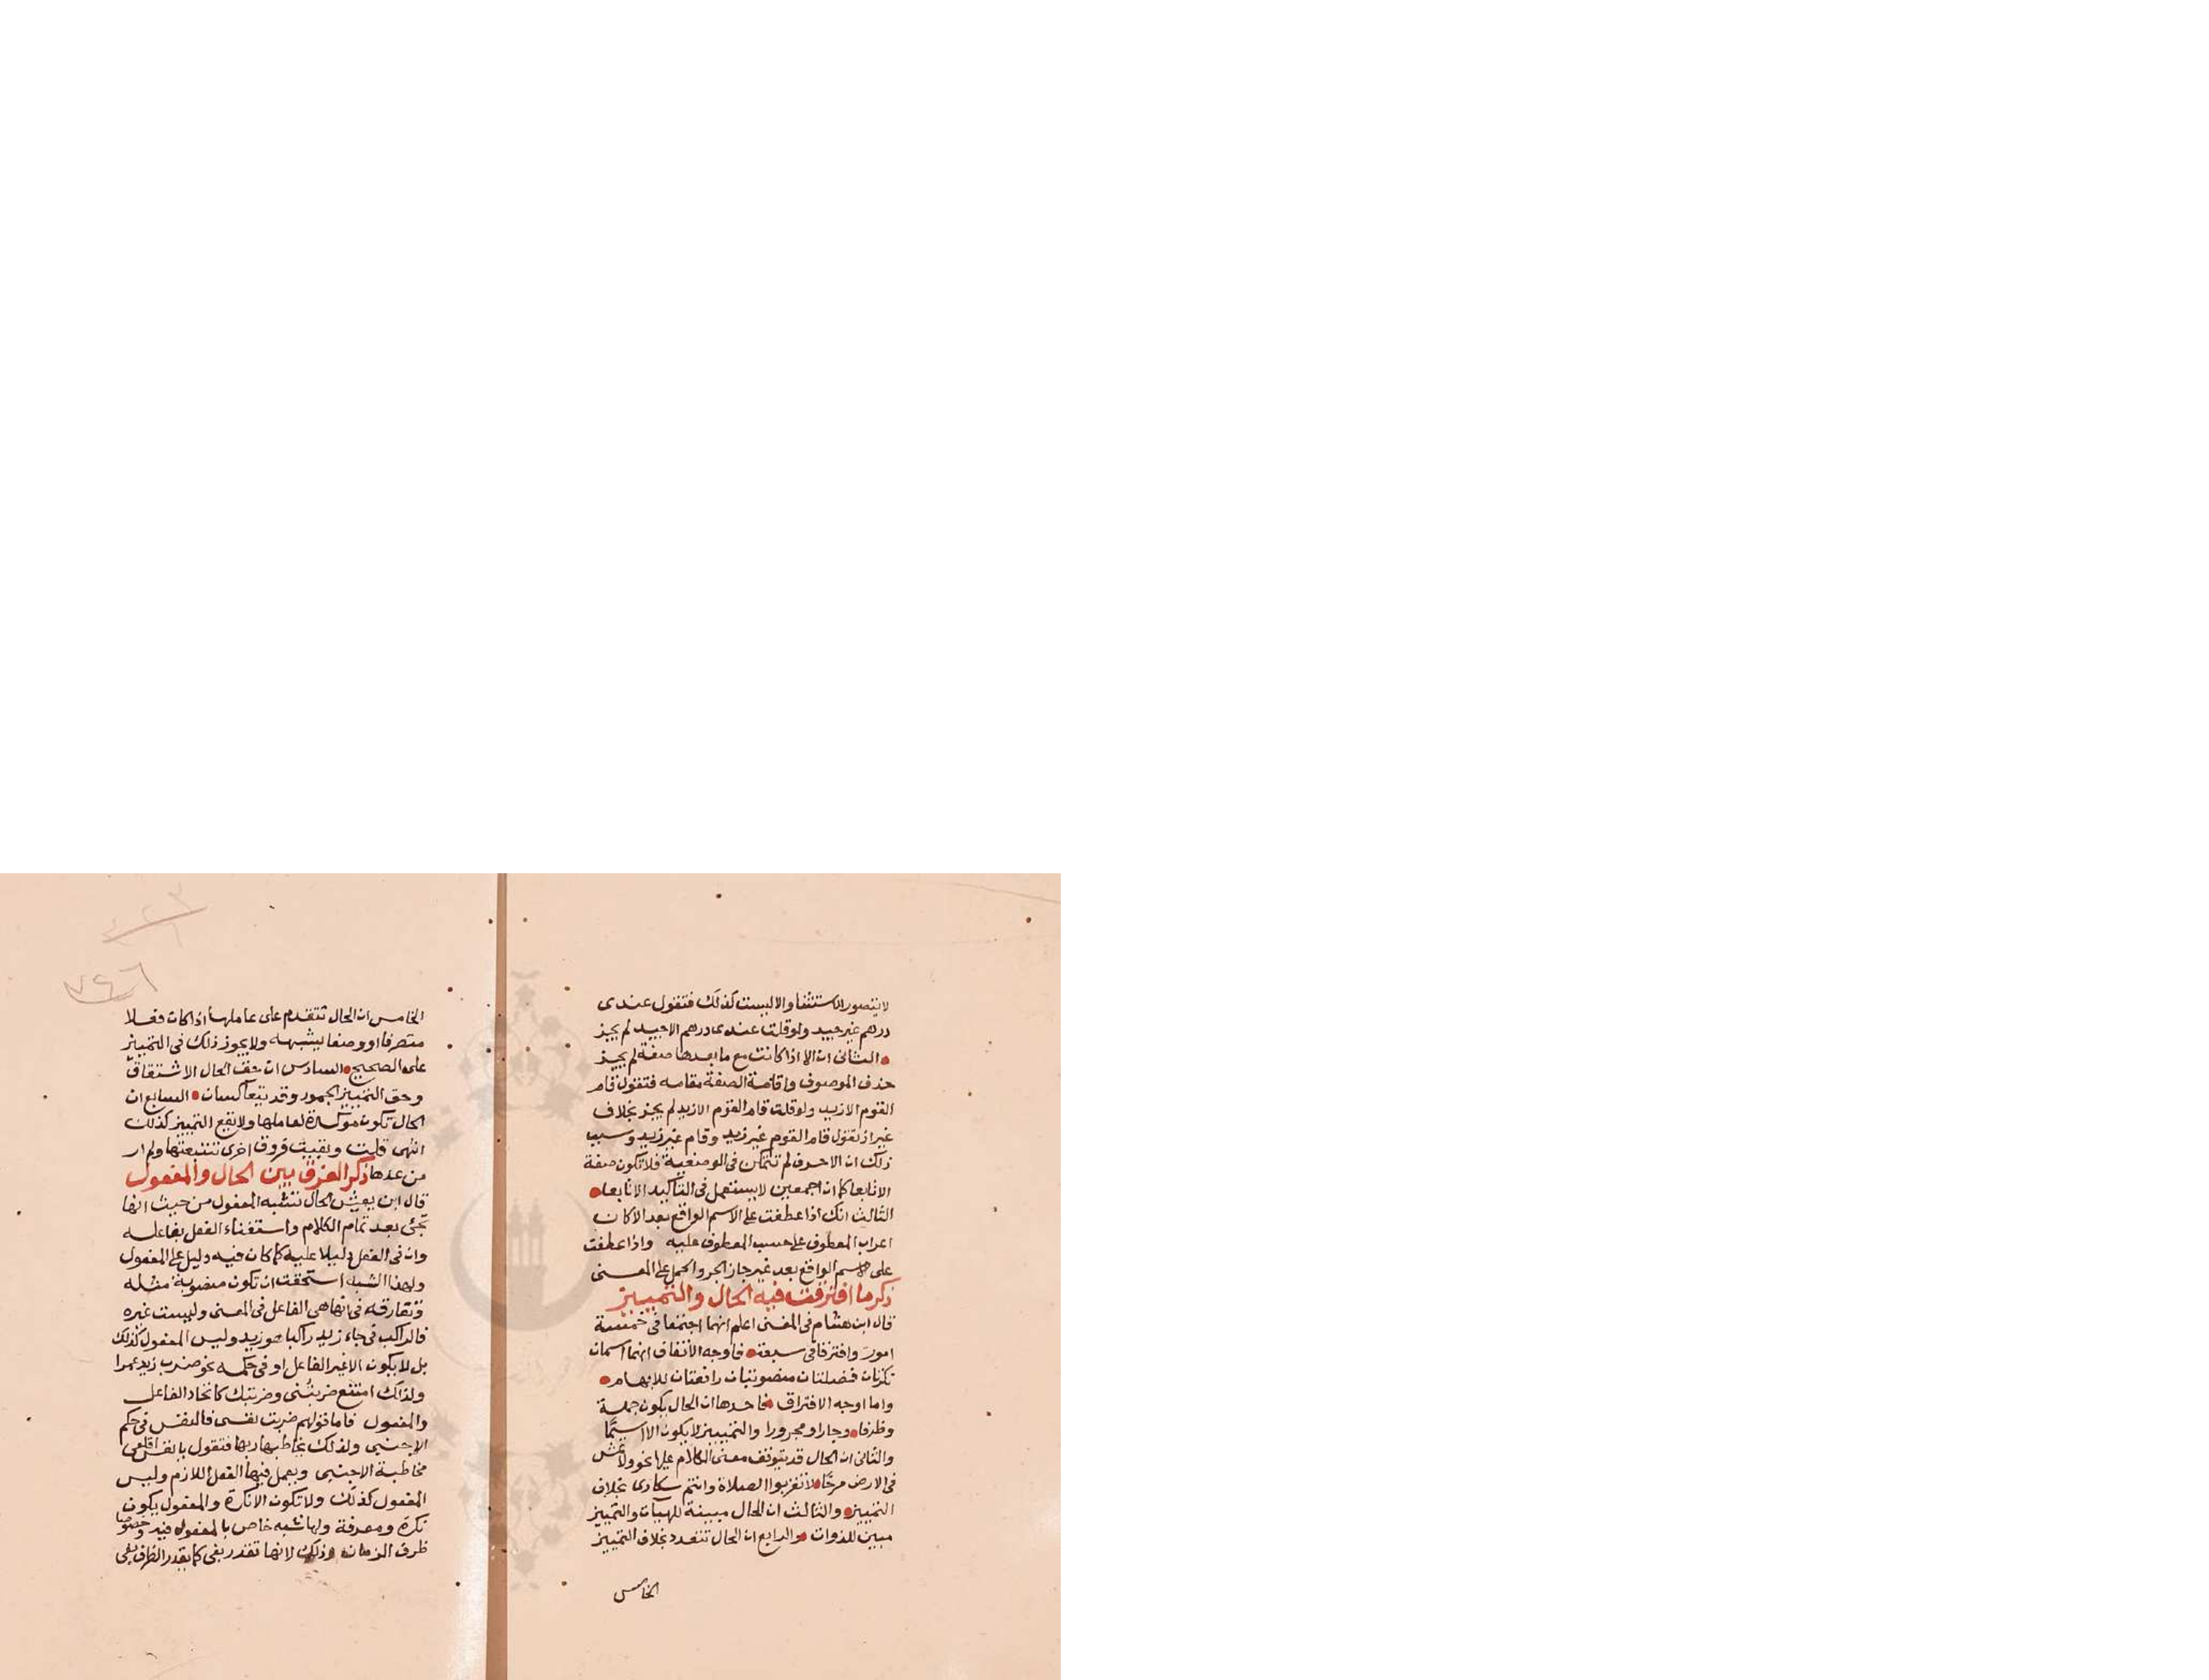 لا يتصور الاستثنا والا ليست كذلك فتقول عندى
درهم غير جيد ولو قلت عندى درهم الا جيد لم يجز
الثانى ان الا اذا كانت مع ما بعدها صفة لم يجز
حذف الموصوف واقامة الصفة مقامه فتقول قام
القوم الا زيد ولو قلت قام القوم الا زيد لم يجز بخلاف
غير اذ تقول قام القوم غير زيد وقام غير زيد وسبب
ذلك ان الا حرف لم تتمكن فى الوصفية فلا تكون صفة
الا تابعا كما ان اجمعين لا يستعمل فى التأكيد الا تابعا
الثالث انك اذا عطفت على الاسم الواقع بعد الا كان
اعراب المعطوف على حسب المعطوف عليه واذا عطفت
على الاسم الواقع بعد غير جاز الجر والحمل على المعنى
ذكر ما افترقت فيه الحال والتمييز
قال ابن هشام فى المغنى اعلم انهما اجتمعا فى خمسة
امور وافترقا فى سبعة فاوجه الاتفاق انهما اسمان
نكرتان فضلتان منصوبتان رافعتان للابهام
واما اوجه الافتراق فاحدها ان الحال يكون جملة
وظرفا وجارا ومجرورا والتمييز لا يكون الا اسمًا
والثانى ان الحال قد يتوقف معنى الكلام عليها نحو ولا تمش
فى الارض مرحًا لا تقربوا الصلاة وانتم سكارى بخلاف
التمييز والثالث ان الحال مبينة للهيات والتمييز
مبين للذوات والرابع ان الحال تتعدد بخلاف التمييز
الخامس
٧٤٦
الخامس ان الحال تتقدم على عاملها اذا كان فعلا
متصرفا او وصفا يشبهه ولا يجوز ذلك فى التمييز
على الصحيح السادس ان حق الحال الاشتقاق
وحق التمييز الجمود وقد يتعاكسان السابع ان
الحال تكون موكدة لعاملها ولا يقع التمييز كذلك
انتهى قلت وبقيت فروق اخرى تتبعتها ولم ار
من عدها ذكر الفرق بين الحال والمفعول
قال ابن يعيش الحال تشبه المفعول من حيث انها
تجئ بعد تمام الكلام واستغناء الفعل بفاعله
وان فى الفعل دليلا عليه كما كان فيه دليل على المفعول
ولهذا الشبه استحقت ان تكون منصوبة مثله
وتفارقه فى انها هى الفاعل فى المعنى وليست غيره
فالراكب فى جاء زيد راكبا هو زيد وليس المفعول كذلك
بل لا يكون الا غير الفاعل او فى حكمه نحو ضرب زيد عمرا
ولذلك امتنع ضربتُنى وضربتك لاتحاد الفاعل
والمفعول فاما قولهم ضربت نفسى فالنفس فى حكم
الاجنبى ولذلك يخاطبها ربها فتقول يا نفس اقلعى
مخاطبة الاجنبى ويعمل فيها الفعل اللازم وليس
المفعول كذلك ولا تكون الا نكرة والمفعول يكون
نكرة ومعرفة ولها شبه خاص بالمفعول فيه وخصوصا
ظرف الزمان وذلك لانها تقدر بفى كما يقدر الظرف بفى